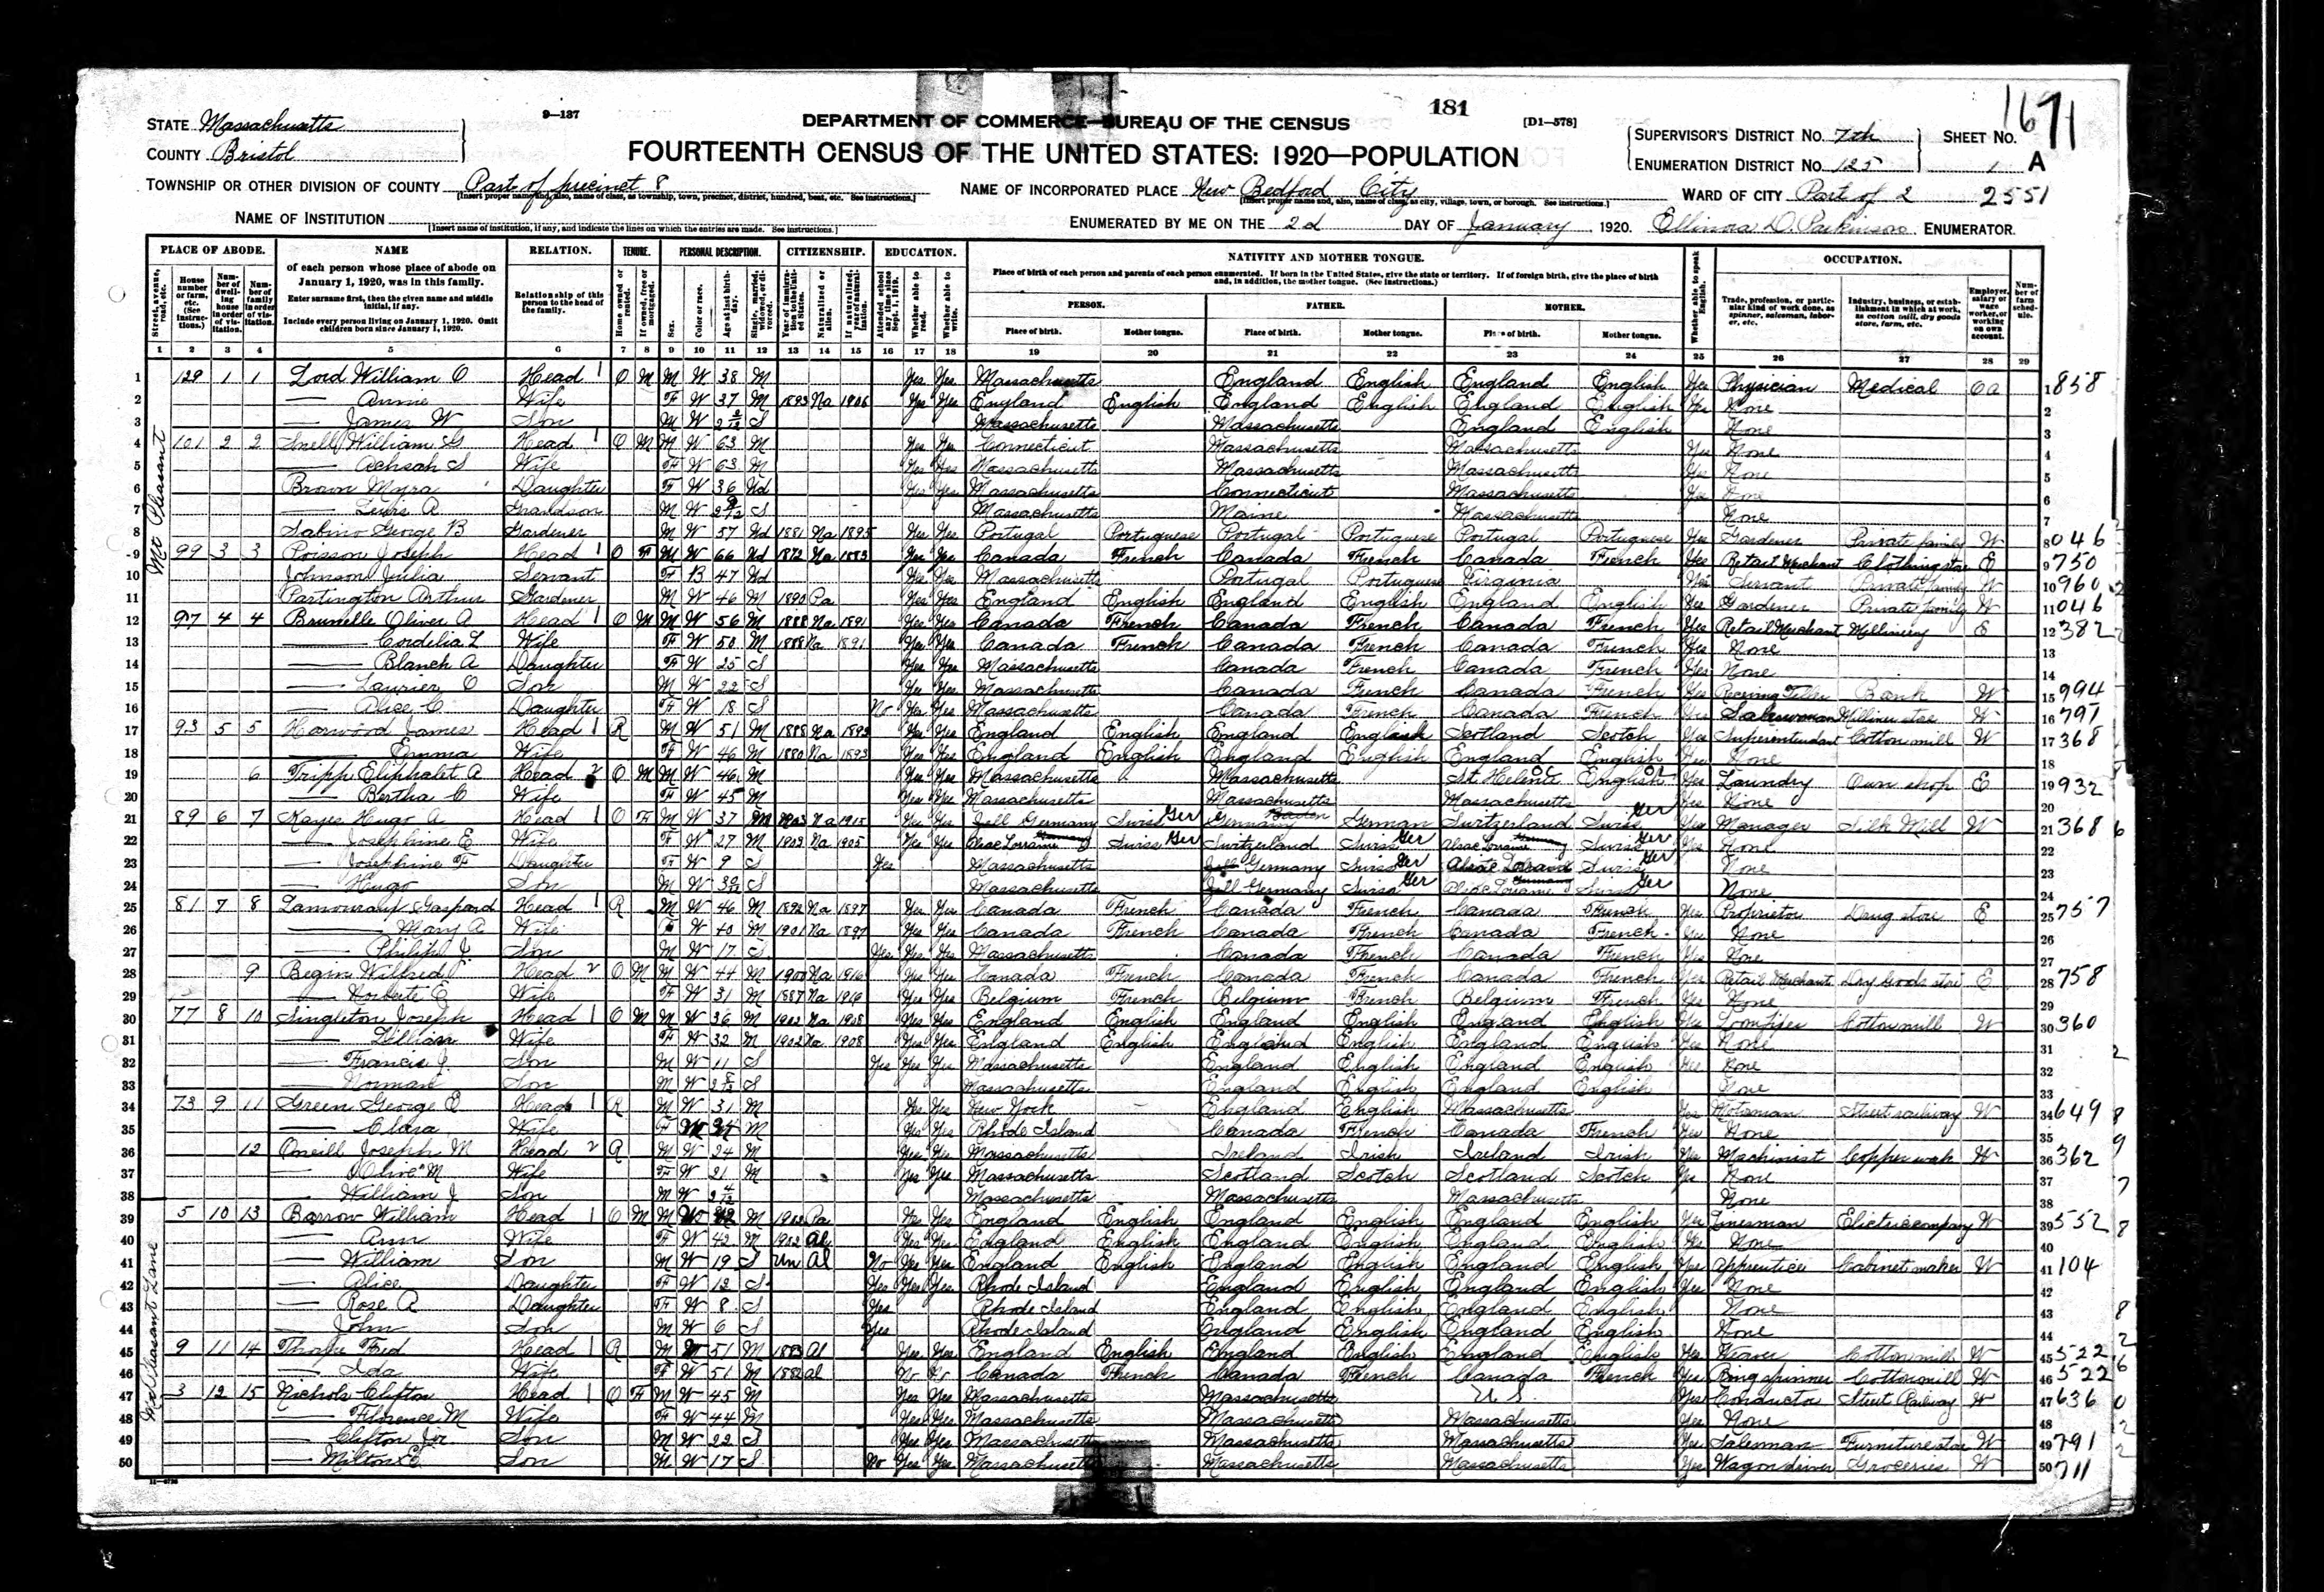 181
1671
STATE Massachusetts
9—137
DEPARTMENT OF COMMERCE—BUREAU OF THE CENSUS
[D1—578]
SUPERVISOR'S DISTRICT No. 7th SHEET No.
COUNTY Bristol
FOURTEENTH CENSUS OF THE UNITED STATES: 1920—POPULATION
ENUMERATION DISTRICT No. 125 1 A
TOWNSHIP OR OTHER DIVISION OF COUNTY Part of precinct 8
[Insert proper name and, also, name of class, as township, town, precinct, district, hundred, beat, etc. See instructions.]
NAME OF INCORPORATED PLACE New Bedford City
[Insert proper name and, also, name of class, as city, village, town, or borough. See instructions.]
WARD OF CITY Part of 2 2551
NAME OF INSTITUTION
[Insert name of institution, if any, and indicate the lines on which the entries are made. See instructions.]
ENUMERATED BY ME ON THE 2d DAY OF January, 1920. Ellinora D. Parkinson ENUMERATOR.
PLACE OF ABODE. NAME RELATION. TENURE. PERSONAL DESCRIPTION. CITIZENSHIP. EDUCATION. NATIVITY AND MOTHER TONGUE. OCCUPATION.
of each person whose place of abode on January 1, 1920, was in this family.
Enter surname first, then the given name and middle initial, if any.
Include every person living on January 1, 1920. Omit children born since January 1, 1920.
Relationship of this person to the head of the family.
Place of birth of each person and parents of each person enumerated. If born in the United States, give the state or territory. If of foreign birth, give the place of birth and, in addition, the mother tongue. (See instructions.)
PERSON. FATHER. MOTHER.
Place of birth. Mother tongue. Place of birth. Mother tongue. Place of birth. Mother tongue.
1 2 3 4 5 6 7 8 9 10 11 12 13 14 15 16 17 18 19 20 21 22 23 24 25 26 27 28 29
Mt Pleasant
1 129 1 1 Lord William O Head 1 O M M W 38 M Yes Yes Massachusetts England English England English Yes Physician Medical OA 1 858
2 — Annie Wife F W 37 M 1893 Na 1906 Yes Yes England English England English England English Yes None 2
3 — James W Son M W S Massachusetts Massachusetts England English None 3
4 101 2 2 Snell William G Head 1 O M M W 63 M Yes Yes Connecticut Massachusetts Massachusetts Yes None 4
5 — Achsah S Wife F W 63 M Yes Yes Massachusetts Massachusetts Massachusetts Yes None 5
6 Brown Myra Daughter F W 36 Wd Yes Yes Massachusetts Connecticut Massachusetts Yes None 6
7 — Lewis A Grandson M W S Massachusetts Maine Massachusetts None 7
8 Sabino George B Gardener M W 57 Wd 1881 Na 1895 Yes Yes Portugal Portuguese Portugal Portuguese Portugal Portuguese Yes Gardener Private family W 8 046
9 99 3 3 Poisson Joseph Head 1 O F M W 66 Wd 1872 Na 1883 Yes Yes Canada French Canada French Canada French Yes Retail Merchant Clothing store E 9 750
10 Johnson Julia Servant F B 47 Wd Yes Yes Massachusetts Portugal Portuguese Virginia Yes Servant Private family W 10 960
11 Partington Arthur Gardener M W 46 M 1890 Pa Yes Yes England English England English England English Yes Gardener Private family W 11 046
12 97 4 4 Brunelle Oliver A Head 1 O M M W 56 M 1888 Na 1891 Yes Yes Canada French Canada French Canada French Yes Retail Merchant Millinery E 12 382
13 — Cordelia L Wife F W 50 M 1888 Na 1891 Yes Yes Canada French Canada French Canada French Yes None 13
14 — Blanch A Daughter F W 25 S Yes Yes Massachusetts Canada French Canada French Yes None 14
15 — Laurier O Son M W 22 S Yes Yes Massachusetts Canada French Canada French Yes Receiving Teller Bank W 15 994
16 — Alice C Daughter F W 18 S No Yes Yes Massachusetts Canada French Canada French Yes Saleswoman Milliner store W 16 791
17 93 5 5 Harwood James Head 1 R M W 51 M 1888 Na 1893 Yes Yes England English England English Scotland Scotch Yes Superintendant Cotton mill W 17 368
18 — Emma Wife F W 46 M 1880 Na 1893 Yes Yes England English England English England English Yes None 18
19 6 Tripp Eliphalet A Head 2 O M M W 46 M Yes Yes Massachusetts Massachusetts St Helena English Yes Laundry Own shop E 19 932
20 — Bertha C Wife F W 45 M Yes Yes Massachusetts Massachusetts Massachusetts Yes None 20
21 89 6 7 Kayes Hugo A Head 1 O F M W 37 M 1903 Na 1915 Yes Yes Germany Swiss Ger Germany Baden German Switzerland Swiss Ger Yes Manager Silk Mill W 21 368
22 — Josephine E Wife F W 27 M 1903 Na 1905 Yes Yes Alsac Lorraine Swiss Ger Switzerland Swiss Ger Alsac Lorraine Swiss Ger Yes None 22
23 — Josephine F Daughter F W 9 S Yes Massachusetts Germany Swiss Ger Swiss Ger None 23
24 — Hugo Son M W S Massachusetts Germany Swiss Ger Alsac Lorraine Swiss Ger None 24
25 81 7 8 Lamouraux Gaspard Head 1 R M W 46 M 1892 Na 1897 Yes Yes Canada French Canada French Canada French Yes Proprietor Drug store E 25 757
26 — Mary A Wife F W 40 M 1901 Na 1897 Yes Yes Canada French Canada French Canada French Yes None 26
27 — Philip J. Son M W 17 S Yes Yes Yes Massachusetts Canada French Canada French Yes None 27
28 9 Begin Wilfred Head 2 O M M W 44 M 1900 Na 1916 Yes Yes Canada French Canada French Canada French Yes Retail Merchant Dry Goods store E 28 758
29 — Norberte E Wife F W 31 M 1887 Na 1916 Yes Yes Belgium French Belgium French Belgium French Yes None 29
30 77 8 10 Singleton Joseph Head 1 O M M W 36 M 1902 Na 1908 Yes Yes England English England English England English Yes Loomfixer Cotton mill W 30 360
31 — Lillian Wife F W 32 M 1902 Na 1908 Yes Yes England English England English England English Yes None 31
32 — Francis J. Son M W 11 S Yes Yes Yes Massachusetts England English England English Yes None 32
33 — Norman Son M W S Massachusetts England English England English None 33
34 73 9 11 Green George E Head 1 R M W 31 M Yes Yes New York England English Massachusetts Yes Motorman Street railway W 34 649
35 — Clara Wife F W M Yes Yes Rhode Island Canada French Canada French Yes None 35
36 12 Oneill Joseph M Head 2 R M W 24 M Yes Yes Massachusetts Ireland Irish Ireland Irish Yes Machinist Copper work W 36 362
37 — Olive M Wife F W 21 M Yes Yes Massachusetts Scotland Scotch Scotland Scotch Yes None 37
38 — William J Son M W Massachusetts Massachusetts Massachusetts None 38
Mt Pleasant Lane
39 5 10 13 Barrow William Head 1 O M M W 42 M 1912 Pa Yes Yes England English England English England English Yes Linesman Electric company W 39 552
40 — Ann Wife F W 42 M 1912 Al Yes Yes England English England English England English Yes None 40
41 — William Son M W 19 S Un Al No Yes Yes England English England English England English Yes apprentice Cabinet maker W 41 104
42 — Alice Daughter F W 12 S Yes Yes Yes Rhode Island England English England English Yes None 42
43 — Rose A Daughter F W 8 S Yes Rhode Island England English England English None 43
44 — John Son M W 6 S Yes Rhode Island England English England English None 44
45 9 11 14 Thorpe Fred Head 1 R M W 51 M 1883 Al Yes Yes England English England English England English Yes Weaver Cotton mill W 45 522
46 — Ida Wife F W 51 M 1882 al No No Canada French Canada French Canada French Yes Ring spinner Cotton mill W 46 522
47 3 12 15 Nichols Clifton Head 1 O F M W 45 M Yes Yes Massachusetts Massachusetts U S. Yes Conductor Street Railway W 47 636
48 — Florence M Wife F W 44 M Yes Yes Massachusetts Massachusetts Massachusetts Yes None 48
49 — Clifton Jr Son M W 22 S Yes Yes Massachusetts Massachusetts Massachusetts Yes Salesman Furniture store W 49 791
50 — Milton E. Son M W 17 S No Yes Yes Massachusetts Massachusetts Massachusetts Yes Wagon driver Groceries W 50 711